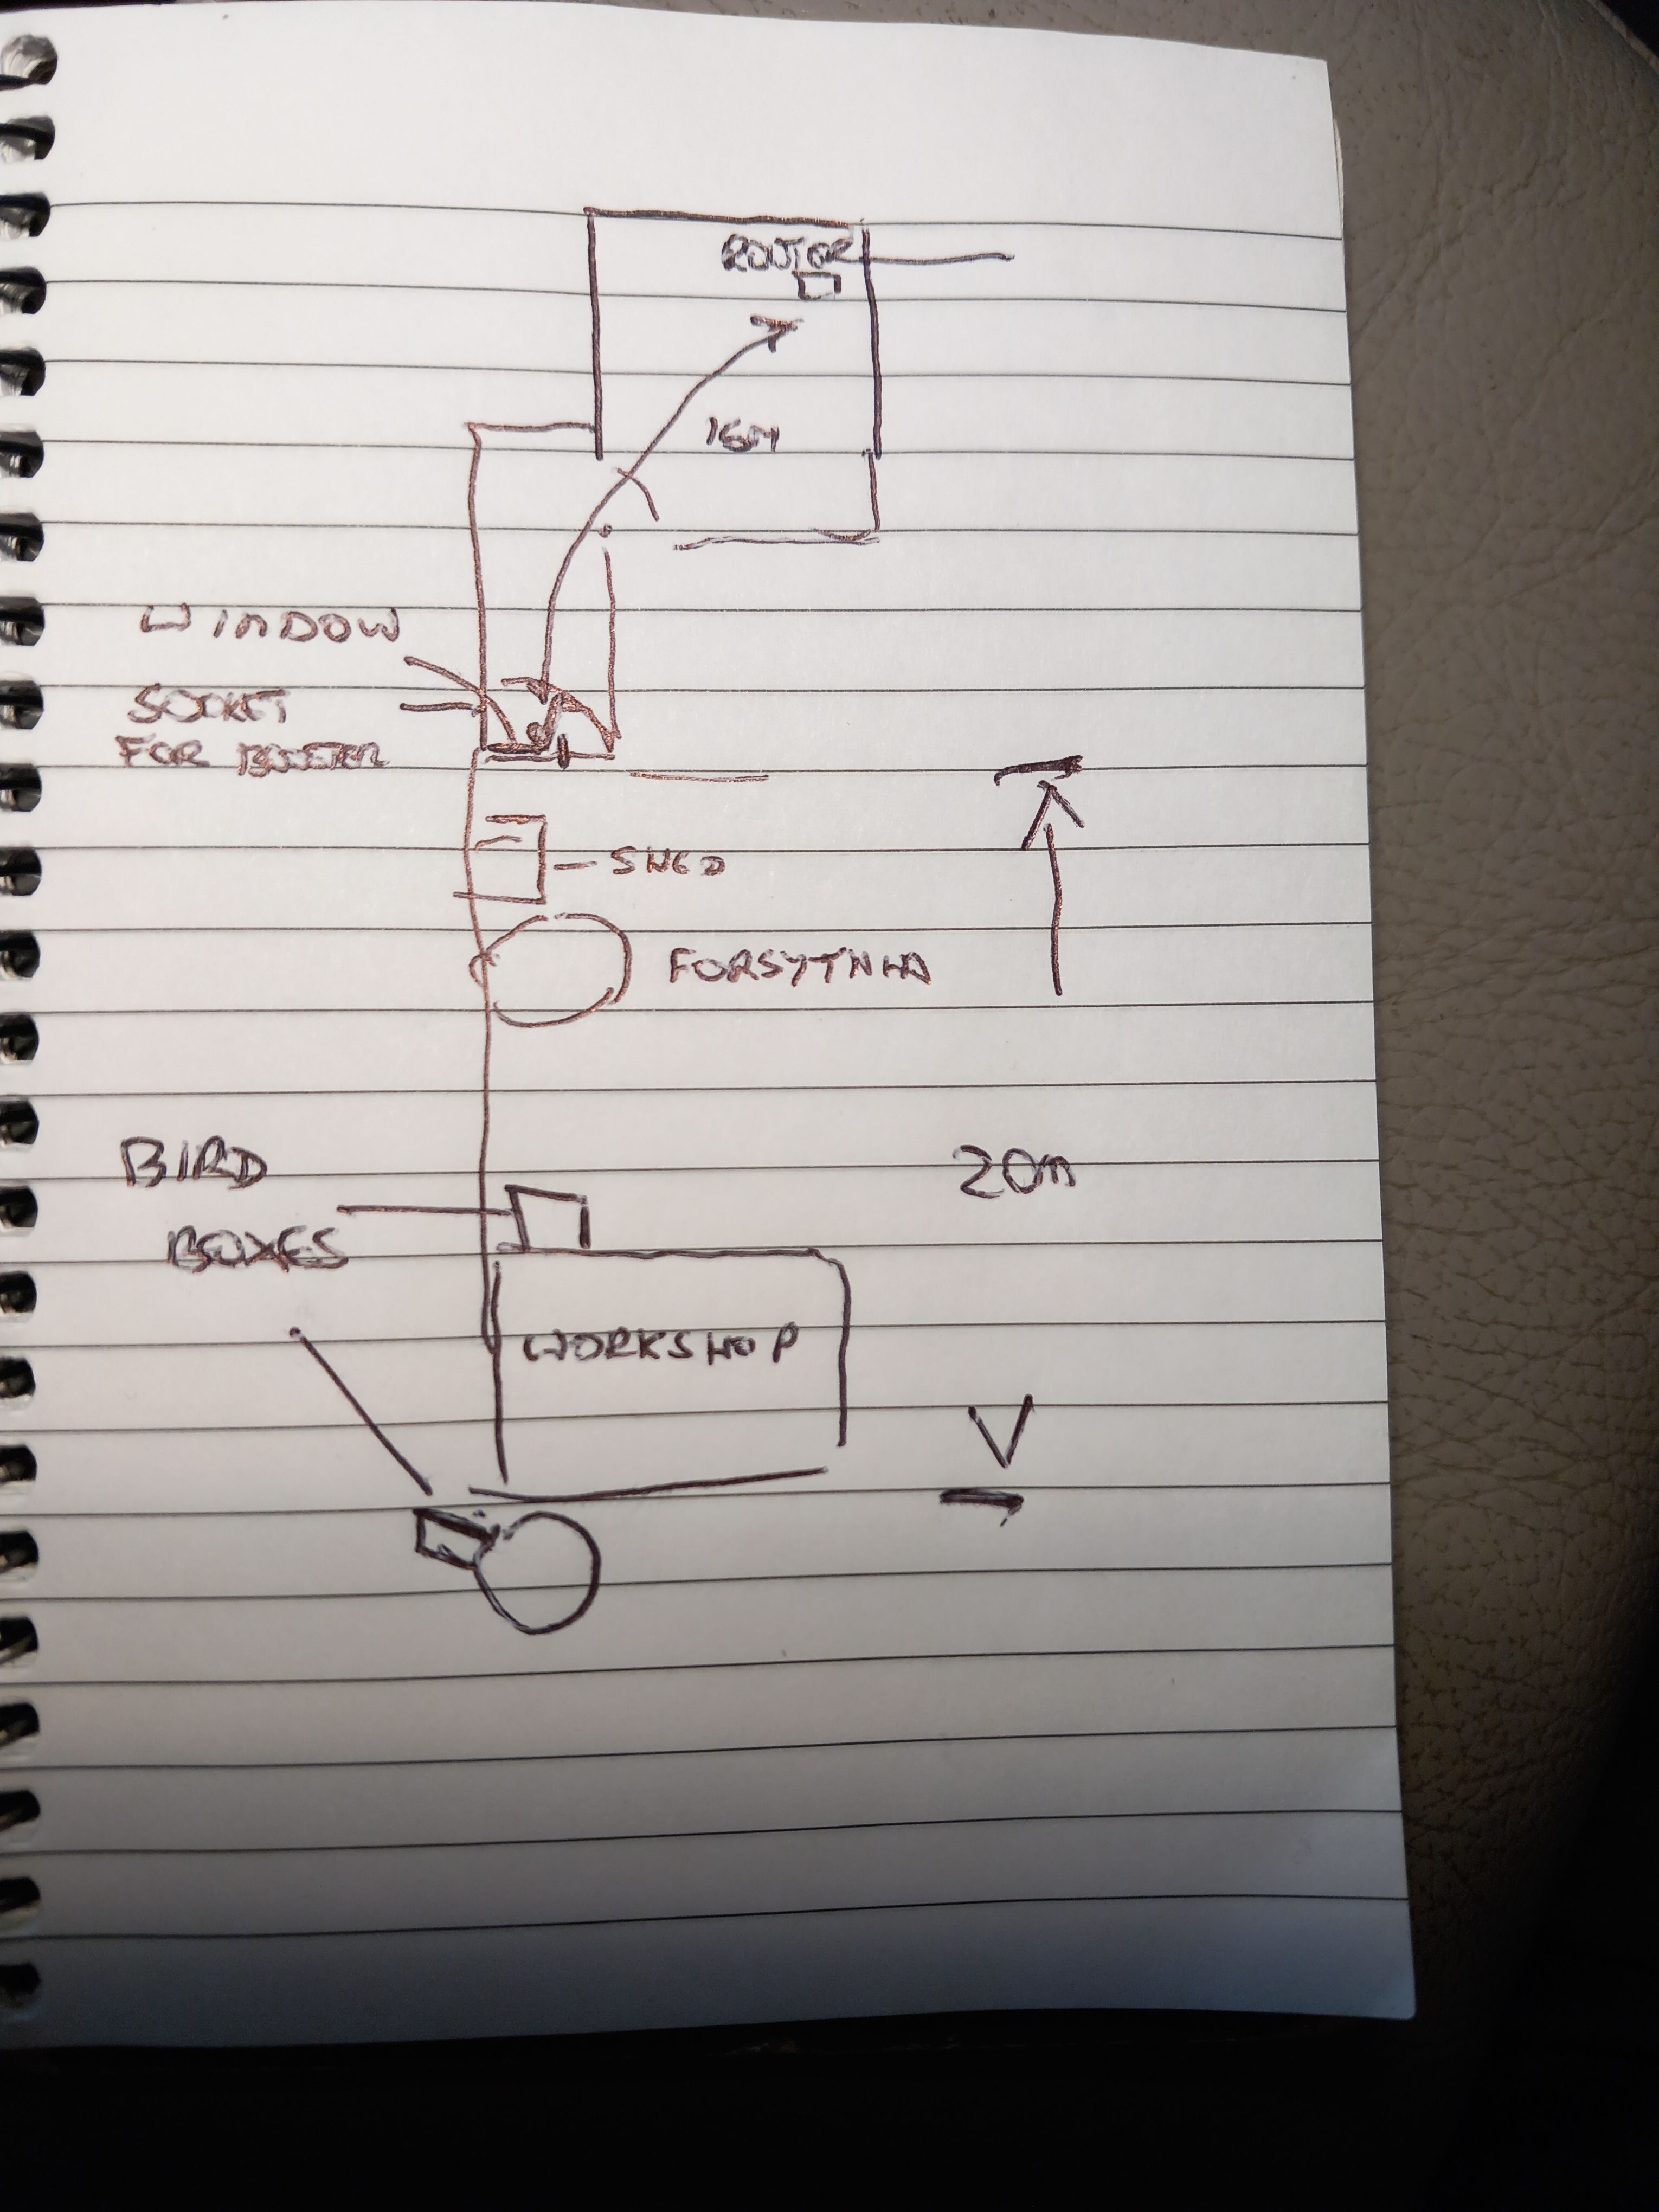 ROUTER
16M
WINDOW
SOCKET
FOR BOOSTER
SHED
FORSYTHIA
BIRD
BOXES
20m
WORKSHOP